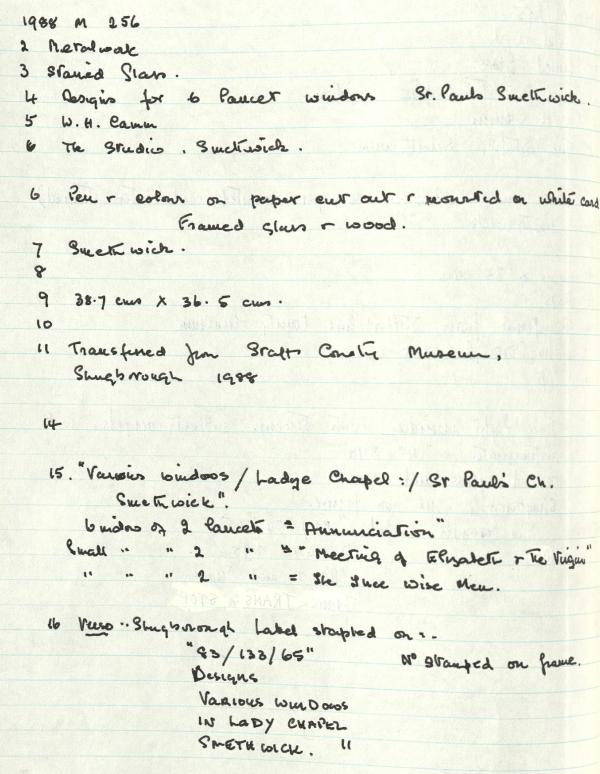 1988 M 256
2 Metalwork
3 Stained Glass.
4 Designs for 6 Lancet windows St. Pauls Smethwick.
5 W.H. Camm
6 The Studio, Smethwick.
6 Pen & colour on paper cut out & mounted on white card
Framed glass & wood.
7 Smethwick.
8
9 38.7 cms x 36.5 cms.
10
11 Transferred from Staffs County Museum,
Shugborough 1988
14
15. "Various windows / Ladye Chapel :/ St Paul's Ch.
Smethwick".
Window of 2 lancets = Annunciation"
Small " " 2 " = "Meeting of Elizabeth & The Virgin"
" " " 2 " = The Three Wise Men.
16 Verso .. Shugborough Label stapled on :-
"83/133/65" No stamped on frame.
Designs
VARIOUS WINDOWS
IN LADY CHAPEL
SMETHWICK. "